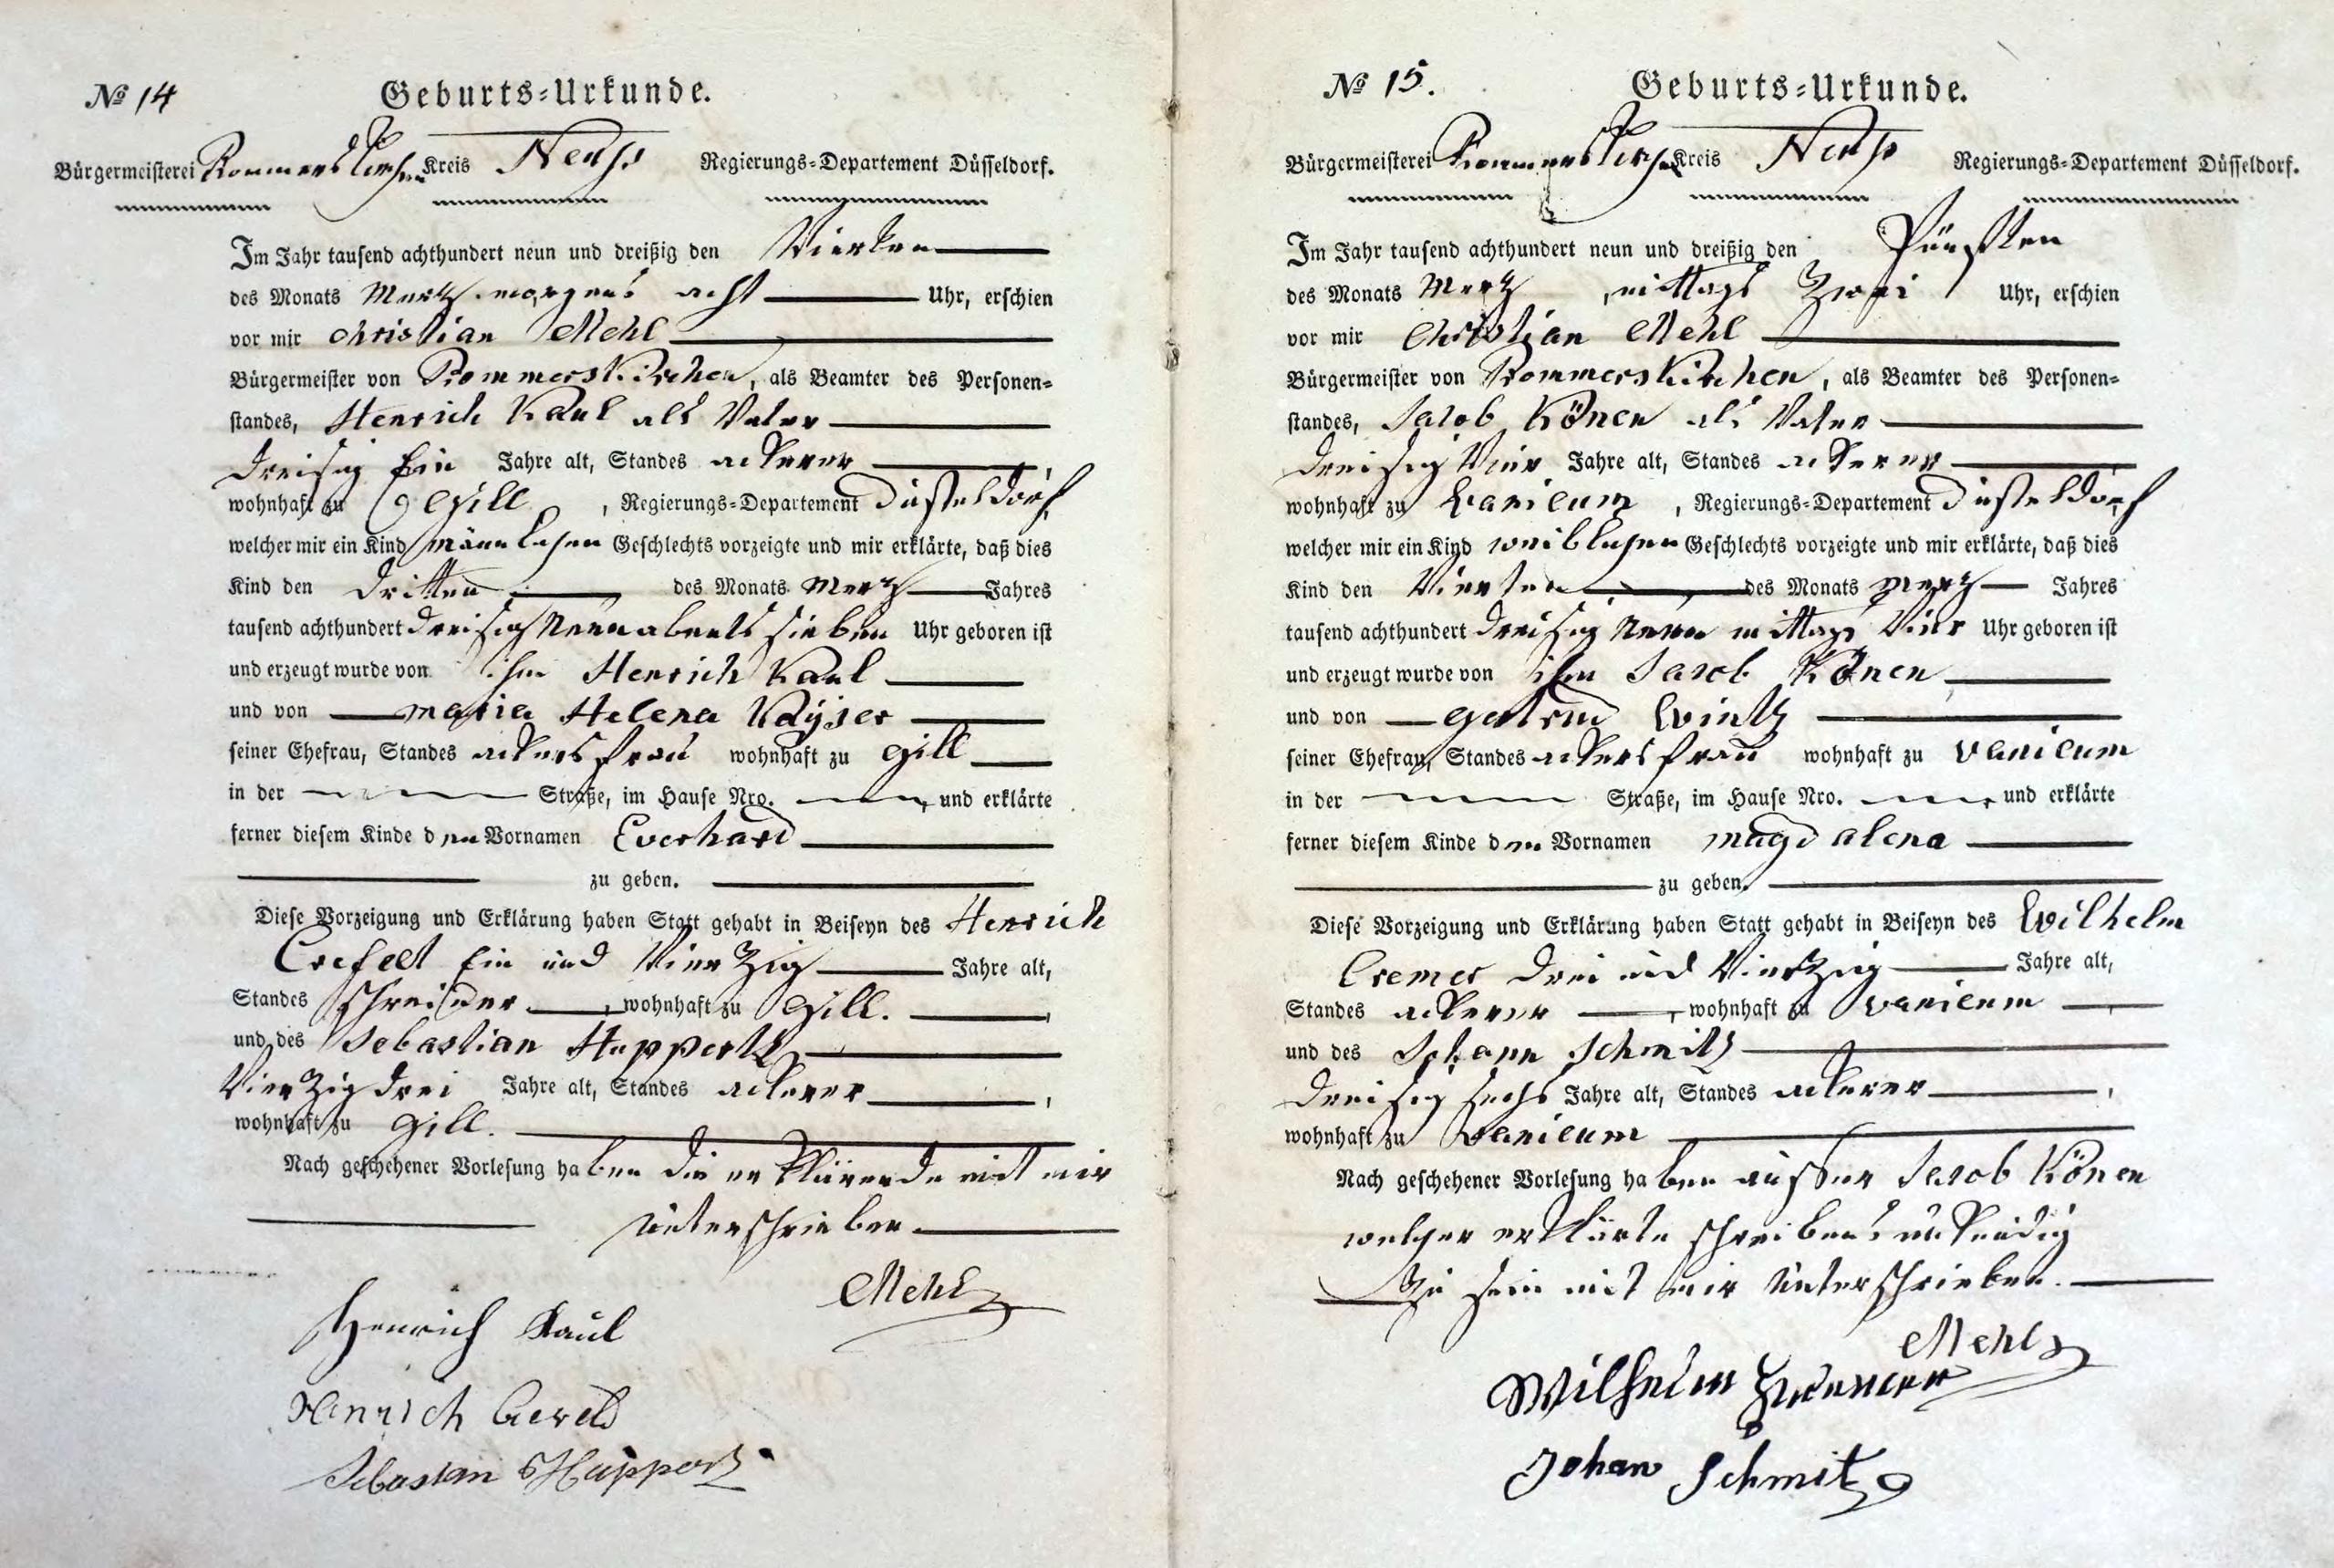 № 14
Geburts-Urkunde.
Bürgermeisterei Rommerskirchen Kreis Neuss Regierungs-Departement Düsseldorf.
Im Jahr tausend achthundert neun und dreißig den Vierten
des Monats Merz morgens acht Uhr, erschien
vor mir Christian Mehl
Bürgermeister von Rommerskirchen, als Beamter des Personen-
standes, Henrich Kaul als Vater
Dreisig Ein Jahre alt, Standes ackerer
wohnhaft zu Gill, Regierungs-Departement Düsseldorf,
welcher mir ein Kind männlichen Geschlechts vorzeigte und mir erklärte, daß dies
Kind den Dritten des Monats Merz Jahres
tausend achthundert Dreisig Neun abends sieben Uhr geboren ist
und erzeugt wurde von ihm Henrich Kaul
und von Maria Helena Kayser
seiner Ehefrau, Standes ackersfrau wohnhaft zu Gill
in der Straße, im Hause Nro. und erklärte
ferner diesem Kinde den Vornamen Everhard
zu geben.
Diese Vorzeigung und Erklärung haben Statt gehabt in Beiseyn des Henrich
Crefelt Ein und Vierzig Jahre alt,
Standes schreiner, wohnhaft zu Gill.,
und des Sebastian Huppertz
Vierzig drei Jahre alt, Standes ackerer,
wohnhaft zu Gill.
Nach geschehener Vorlesung haben die erklärende mit mir
unterschrieben.
Mehl
Henrich Kaul
Henrich
Sebastian Huppertz
№ 15.
Geburts-Urkunde.
Bürgermeisterei Rommerskirchen Kreis Neuss Regierungs-Departement Düsseldorf.
Im Jahr tausend achthundert neun und dreißig den Fünften
des Monats Merz mittags Zwei Uhr, erschien
vor mir Christian Mehl
Bürgermeister von Rommerskirchen, als Beamter des Personen-
standes, Jacob Könen als Vater
Dreisig Vier Jahre alt, Standes ackerer
wohnhaft zu Vanicum, Regierungs-Departement Düsseldorf
welcher mir ein Kind weiblichen Geschlechts vorzeigte und mir erklärte, daß dies
Kind den Vierten des Monats Merz Jahres
tausend achthundert Dreisig Neun mittags Vier Uhr geboren ist
und erzeugt wurde von ihm Jacob Könen
und von Gertrud Wintz
seiner Ehefrau, Standes ackersfrau wohnhaft zu Vanicum
in der Straße, im Hause Nro. und erklärte
ferner diesem Kinde den Vornamen Magdalena
zu geben.
Diese Vorzeigung und Erklärung haben Statt gehabt in Beiseyn des Wilhelm
Cremer Drei und Vierzig Jahre alt,
Standes ackerer, wohnhaft zu Vanicum,
und des Johann Schmitz
Dreisig sechs Jahre alt, Standes ackerer,
wohnhaft zu Vanicum
Nach geschehener Vorlesung haben ausser Jacob Könen
welcher erklärte schreibens unkundig
zu sein mit mir unterschrieben.
Mehl
Wilhelm
Johan Schmitz